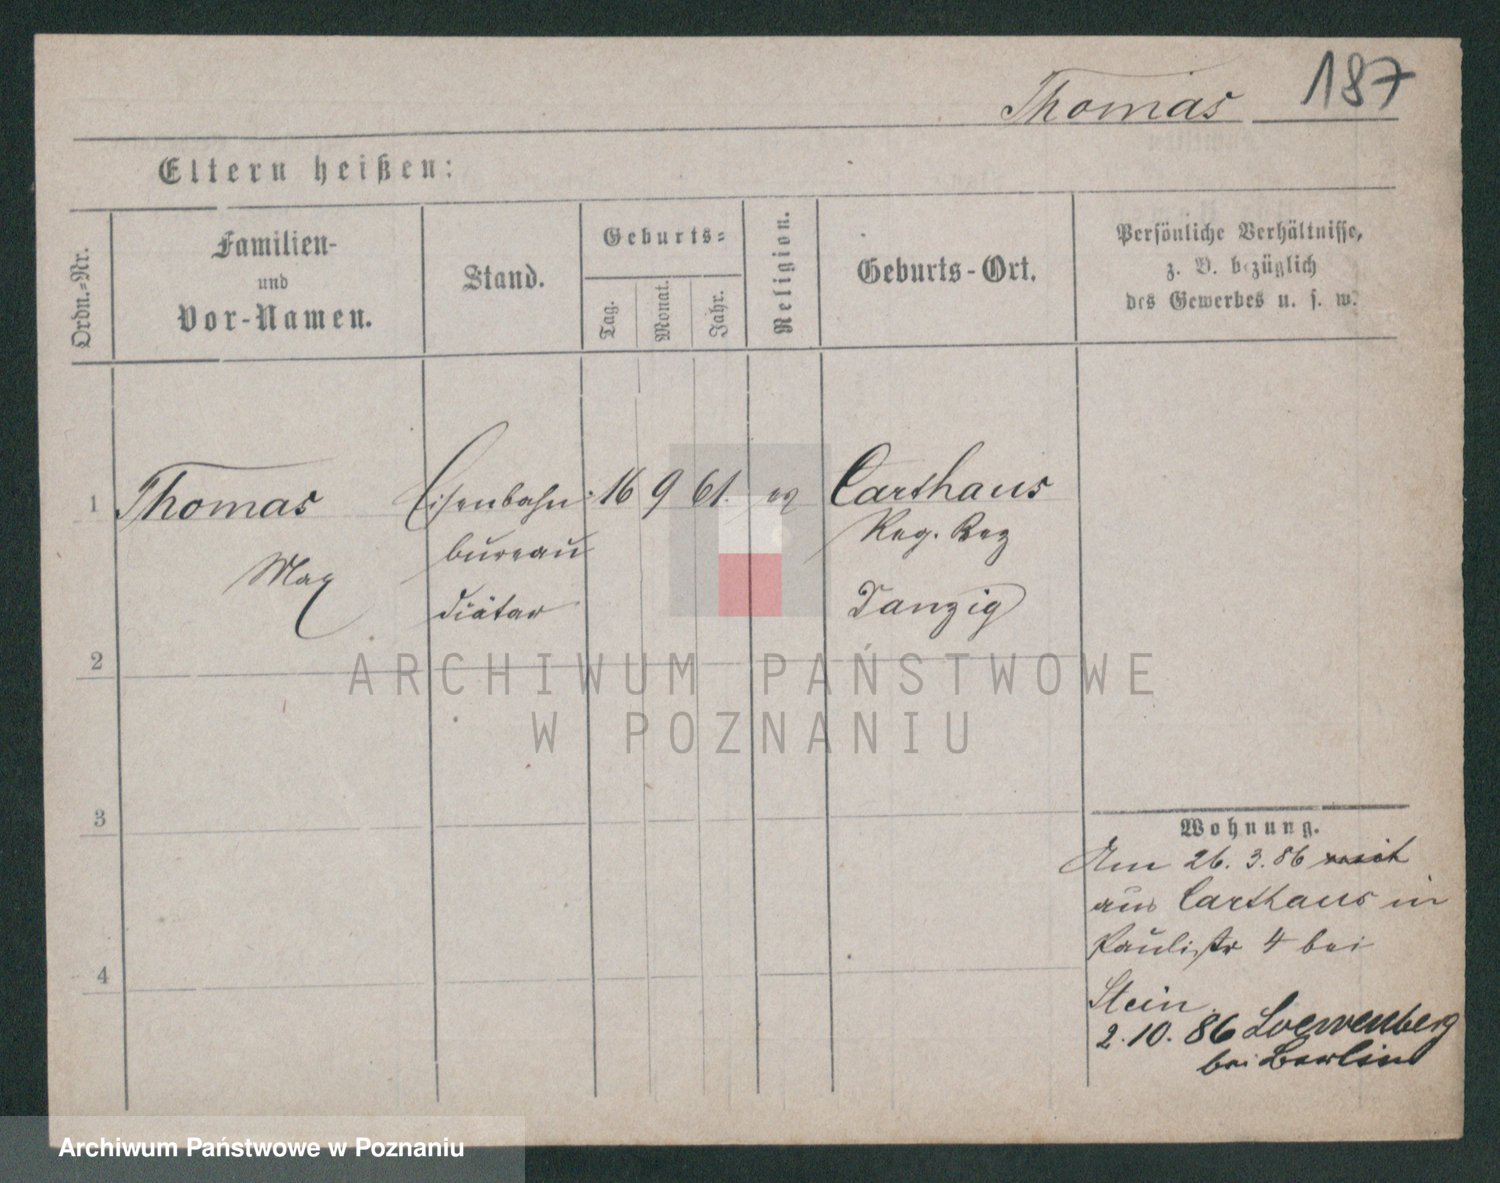 187
Thomas
Eltern heißen:
Ordn.-Nr.
Familien-
und
Vor-Namen.
Stand.
Geburts-
Tag.
Monat.
Jahr.
Religion.
Geburts-Ort.
Persönliche Verhältnisse,
z. B. bezüglich
des Gewerbes u. s. w.
1 Thomas Eisenbahn- 16 9 61. ev Carthaus
Max bureau Reg. Bez
diätar Danzig
2
3
4
ARCHIWUM PAŃSTWOWE
W POZNANIU
Wohnung.
Am 26. 3. 86
aus Carthaus in
Paulistr 4 bei
Stein.
2. 10. 86 Loewenberg
bei Berlin
Archiwum Państwowe w Poznaniu